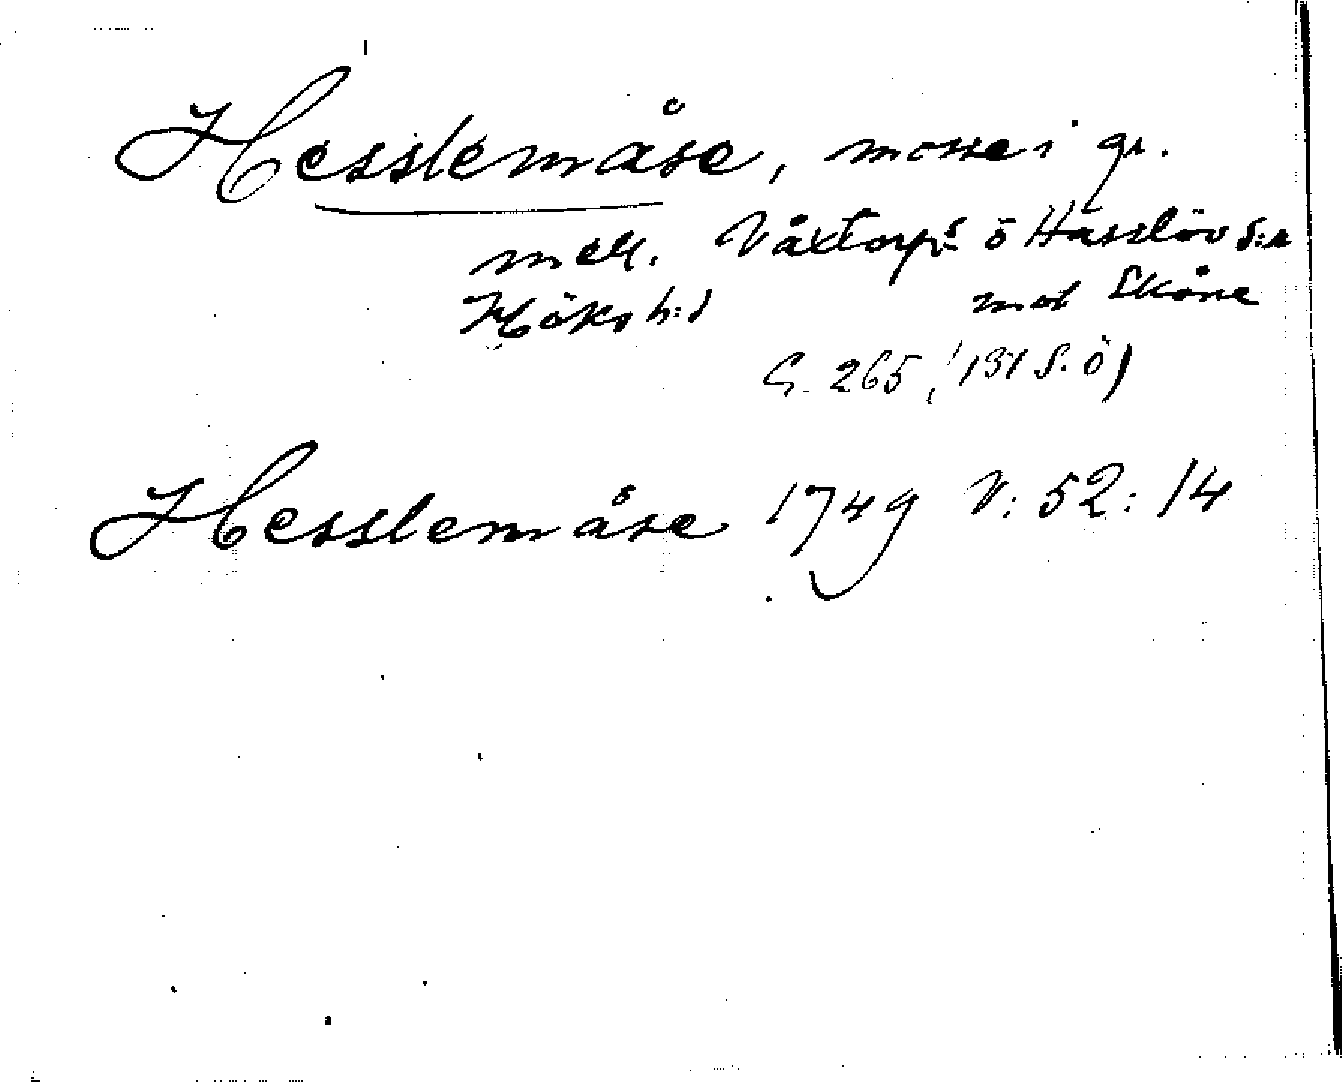 Hesslemåse, mosse i gr.
mell. Våxtorps ö Hasslöv s:n
Höks h:d mot Skåne
G. 265, (131 S. Ö)
Hesslemåse 1749 V: 52: 14